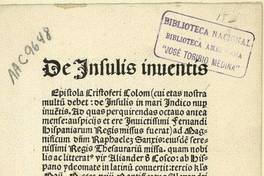 AAC9648
BIBLIOTECA NACIONAL
BIBLIOTECA AMERICANA
"JOSÉ TORIBIO MEDINA"
De Insulis inuentis
Epistola Cristoferi Colom (cui etas nostra
multũ debet: de Insulis in mari Indico nup
inuẽtis. Ad quas perquirendas octauo antea
mense: auspicijs et ere Inuictissimi Fernandi
Hispaniarum Regis missus fuerat) ad Mag-
nificum dñm Raphaelez Sanxis: eiusdẽ sere
nissimi Regis Thesaurariũ missa. quam nobi
lis ac litterat⁹ vir Aliander d̃ Cosco: ab His
pano ydeomate in latinũ conuertit: tercio kl̃s